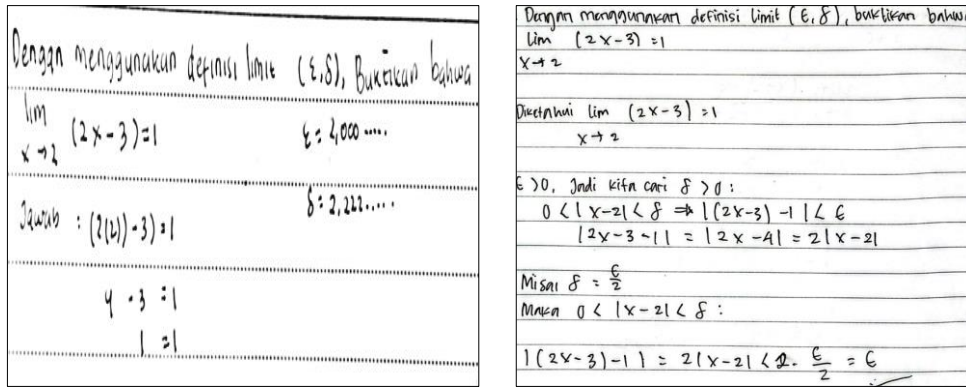 Dengan menggunakan definisi limit (ε,δ), Buktikan bahwa
lim (2x-3)=1
x→2
ε = 2,000.....
δ = 2,222.....
Jawab : (2(2))-3)=1
4 -3 =1
1 =1
Dengan menggunakan definisi limit (ε,δ), buktikan bahwa
lim (2x-3) =1
x→2
Diketahui lim (2x-3) =1
x→2
ε >0, Jadi kita cari δ >0 :
0 < |x-2| < δ ⇒ |(2x-3) -1| < ε
|2x-3-1| = |2x-4| = 2|x-2|
Misal δ = ε/2
Maka 0 < |x-2| < δ :
|(2x-3)-1| = 2|x-2| < 2. ε/2 = ε